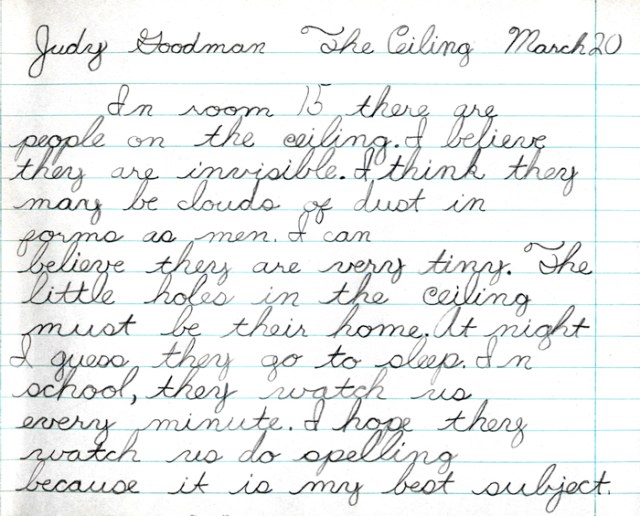 Judy Goodman The Ceiling March 20
In room 15 there are
people on the ceiling. I believe
they are invisible. I think they
may be clouds of dust in
forms as men. I can
believe they are very tiny. The
little holes in the ceiling
must be their home. At night
I guess they go to sleep. In
school, they watch us
every minute. I hope they
watch us do spelling
because it is my best subject.